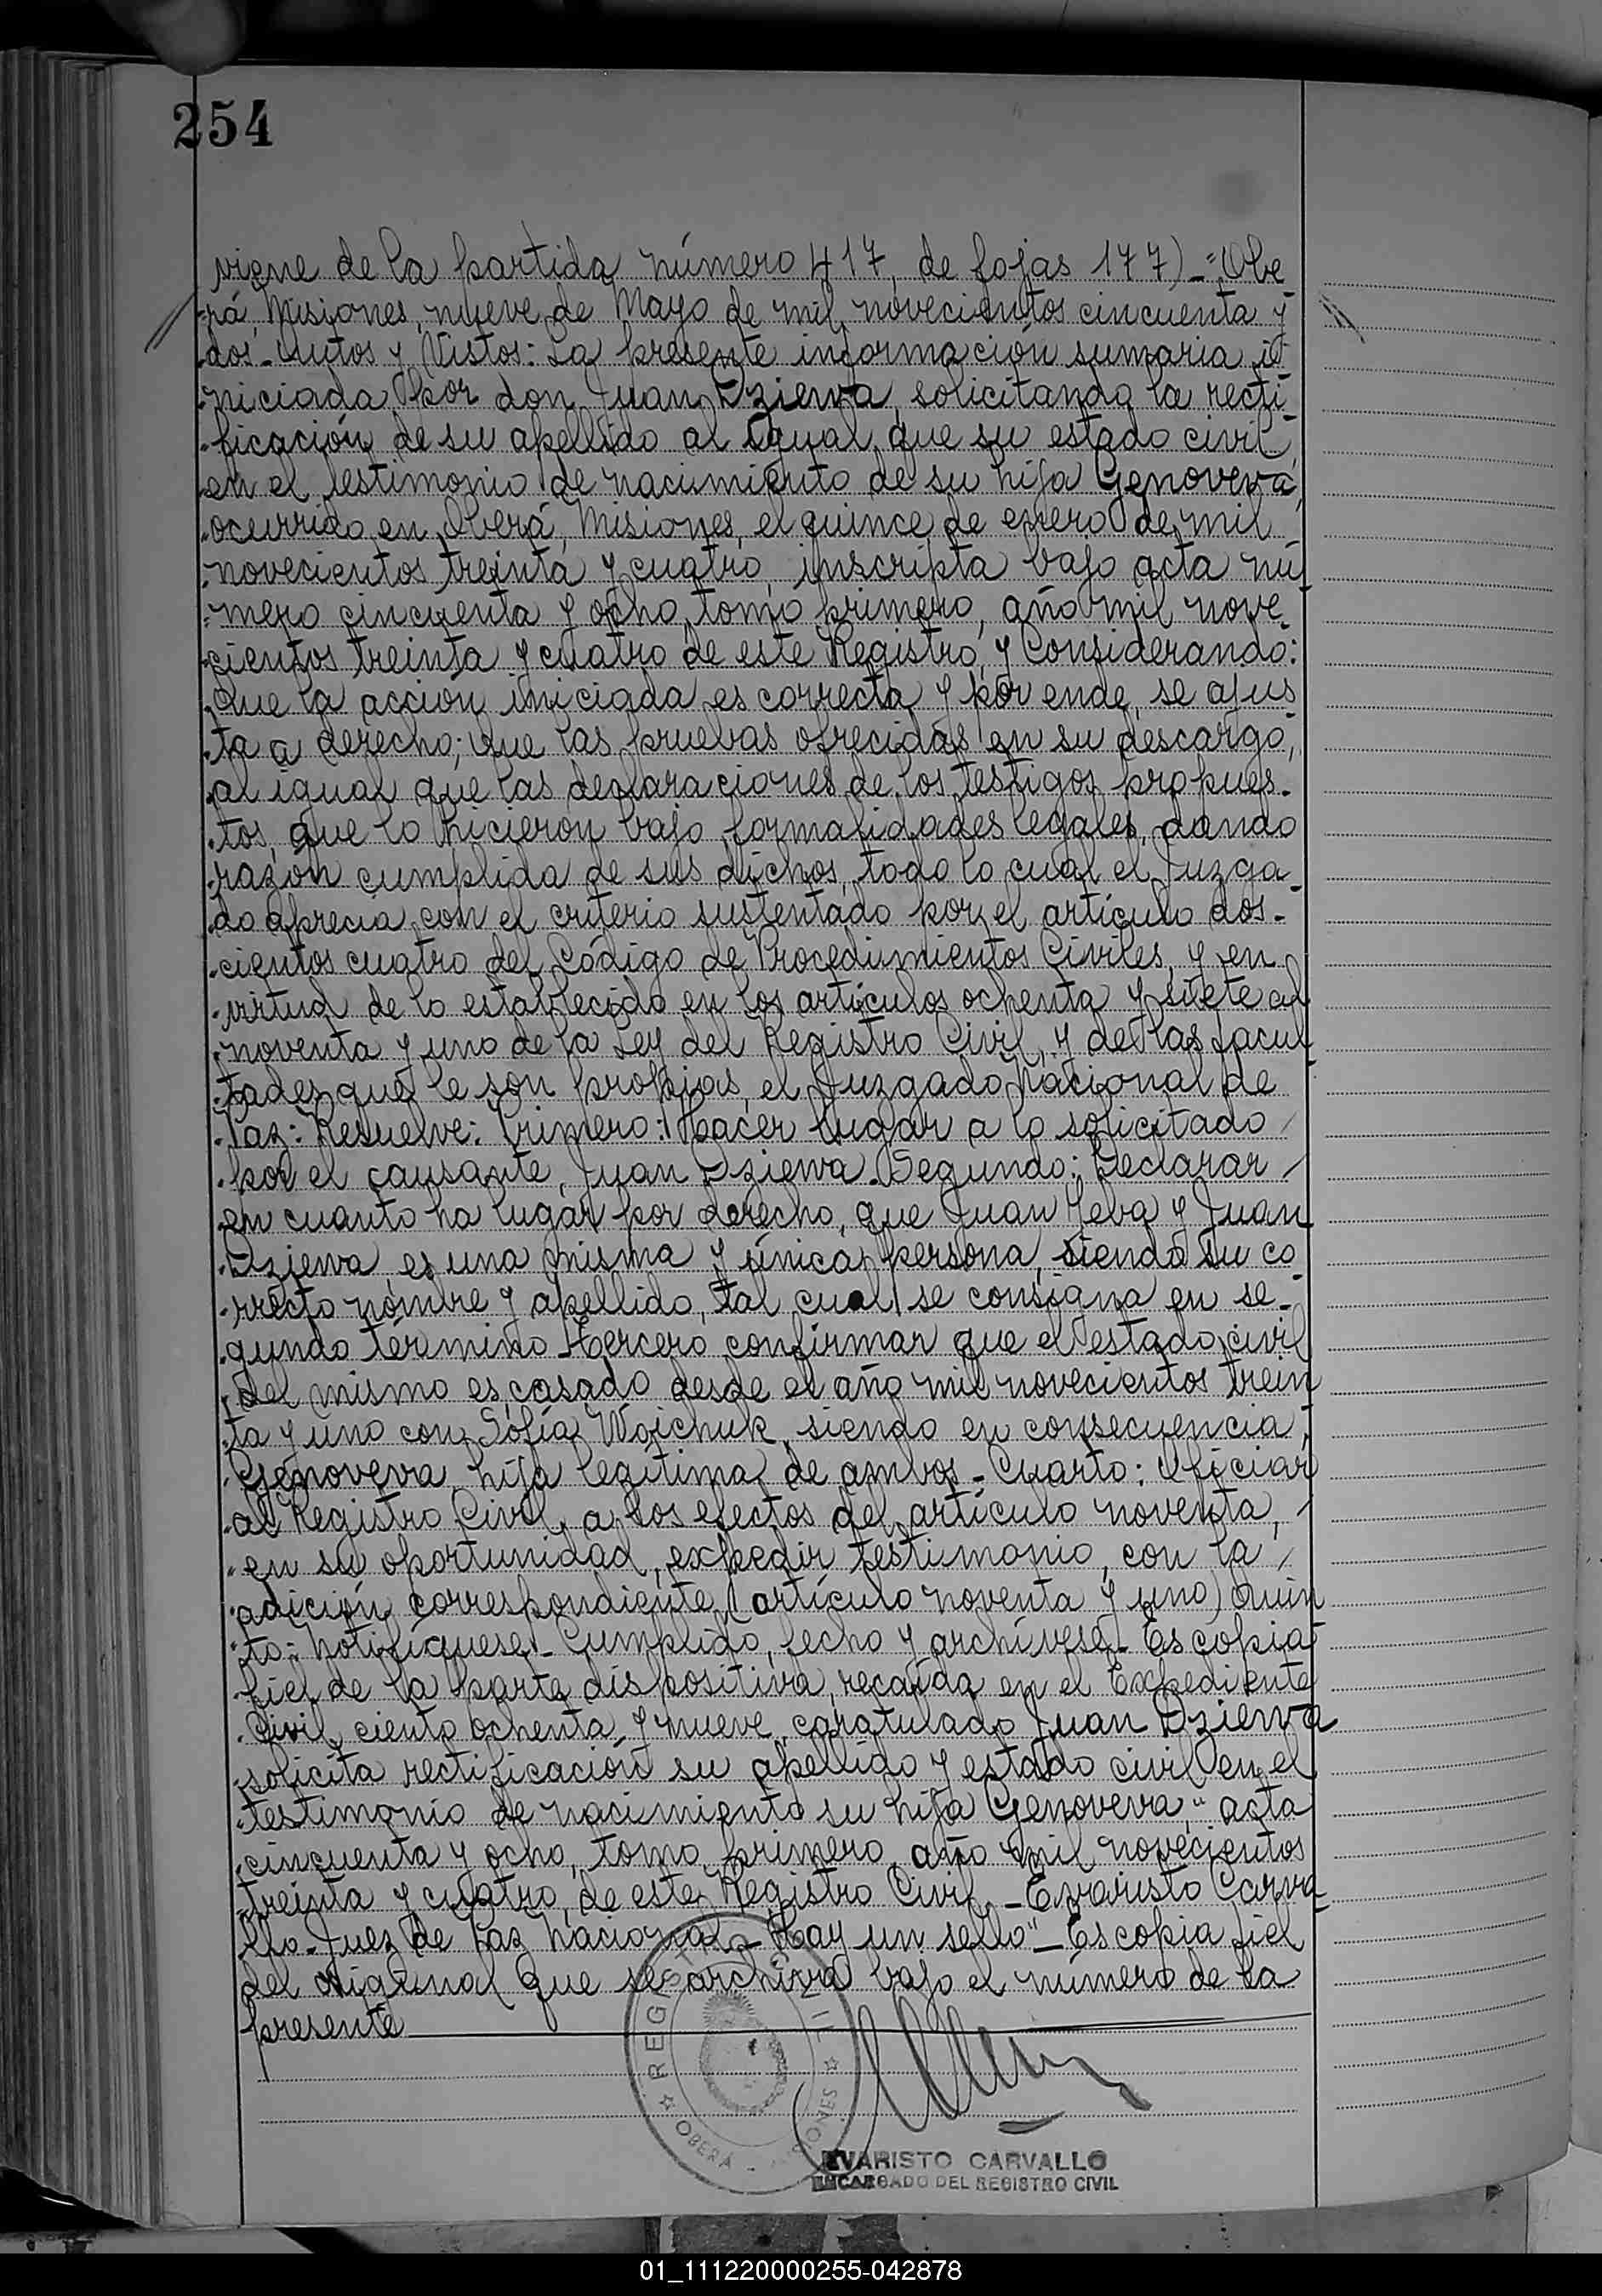 254
viene de la partida número 417, de fojas 177)-"Obe
rá, Misiones, nueve de Mayo de mil novecientos cincuenta y
dos- Autos y Vistos: La presente información sumaria i
niciada por don Juan Dziewa, solicitando la recti
ficación de su apellido al igual que su estado civil,
en el testimonio de nacimiento de su hija Genoveva,
ocurrido en Oberá, Misiones, el quince de enero de mil
novecientos treinta y cuatro, inscripta bajo acta nú
mero cincuenta y ocho, tomo primero, año mil nove
cientos treinta y cuatro de este Registro, y Considerando:
Que la acción iniciada es correcta y por ende, se ajus
ta a derecho; que las pruebas ofrecidas en su descargo,
al igual que las declaraciones de los testigos propues-
tos, que lo hicieron bajo formalidades legales, dando
razón cumplida de sus dichos, todo lo cual el Juzga
do aprecia con el criterio sustentado por el artículo dos-
cientos cuatro del Código de Procedimientos Civiles, y en
virtud de lo establecido en los artículos ochenta y siete al
noventa y uno de la Ley del Registro Civil, y de las facul
tades que le son propias, el Juzgado Nacional de
Paz: Resuelve: Primero: Hacer lugar a lo solicitado
por el causante, Juan Dziewa. Segundo: Declarar
en cuanto ha lugar por derecho, que Juan Yeba y Juan
Dziewa, es una misma y única persona, siendo su co
rrecto nombre y apellido, tal cual se consigna en se-
gundo término- Tercero confirmar que el estado civil
del mismo es casado desde el año mil novecientos trein
ta y uno con Sofía Wojchuk, siendo en consecuencia,
Genoveva, hija legítima de ambos- Cuarto: Oficiar
al Registro Civil, a los efectos del artículo noventa,
en su oportunidad, expedir testimonio, con la
adición correspondiente (artículo noventa y uno) Quin
to: Notifíquese- Cumplido, fecho y archívese- Es copia
fiel de la parte dispositiva, recaída en el Expediente
Civil, ciento ochenta y nueve, caratulado Juan Dziewa
solicita rectificación su apellido y estado civil en el
testimonio de nacimiento su hija Genoveva," acta
cincuenta y ocho, tomo primero, año mil novecientos
treinta y cuatro, de este Registro Civil.- Evaristo Carva
llo- Juez de Paz Nacional- Hay un sello"- Es copia fiel
del original que se archiva bajo el número de la
presente
REGISTRO CIVIL
OBERÁ - MISIONES
EVARISTO CARVALLO
ENCARGADO DEL REGISTRO CIVIL
01_111220000255-042878